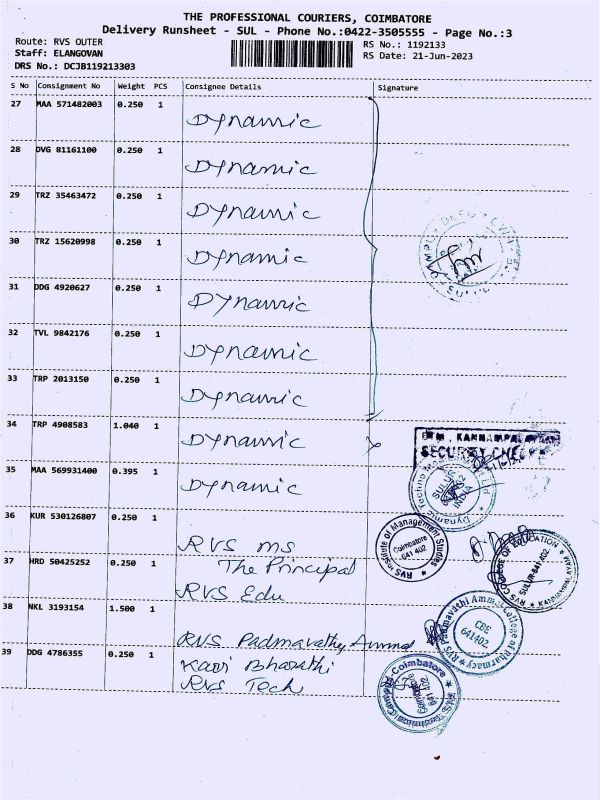 THE PROFESSIONAL COURIERS, COIMBATORE
Delivery Runsheet - SUL - Phone No.:0422-3505555 - Page No.:3
Route: RVS OUTER
RS No.: 1192133
Staff: ELANGOVAN
RS Date: 21-Jun-2023
DRS No.: DCJB119213303
S No Consignment No Weight PCS Consignee Details Signature
27 MAA 571482003 0.250 1 Dynamic
28 DVG 81161100 0.250 1 Dynamic
29 TRZ 35463472 0.250 1 Dynamic
30 TRZ 15620998 0.250 1 Dynamic
31 DDG 4920627 0.250 1 Dynamic
32 TVL 9842176 0.250 1 Dynamic
33 TRP 2013150 0.250 1 Dynamic
34 TRP 4908583 1.040 1 Dynamic
SECURITY
35 MAA 569931400 0.395 1 Dynamic
Dynamic Techno
SULUR
INDIA
36 KUR 530126807 0.250 1 RVS MS
RVS Institute of Management Studies
Coimbatore
641 402
37 HRD 50425252 0.250 1 The Principal
RVS Edu
RVS COLLEGE OF EDUCATION
SULUR-641 402
38 NKL 3193154 1.500 1
RVS Padmavathy Ammal
Padmavathi Ammal College of Pharmacy RVS
CBE
641402
39 DDG 4786355 0.250 1 Kavi Bharathi
RVS Tech
Coimbatore
641 402